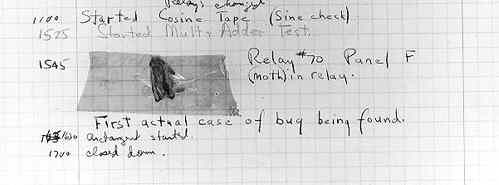 Relays changed
1100 Started Cosine Tape (Sine check)
1525 Started Mult+Adder Test.
1545 Relay #70 Panel F
(moth) in relay.
First actual case of bug being found.
1630 antangent started.
1700 closed down.